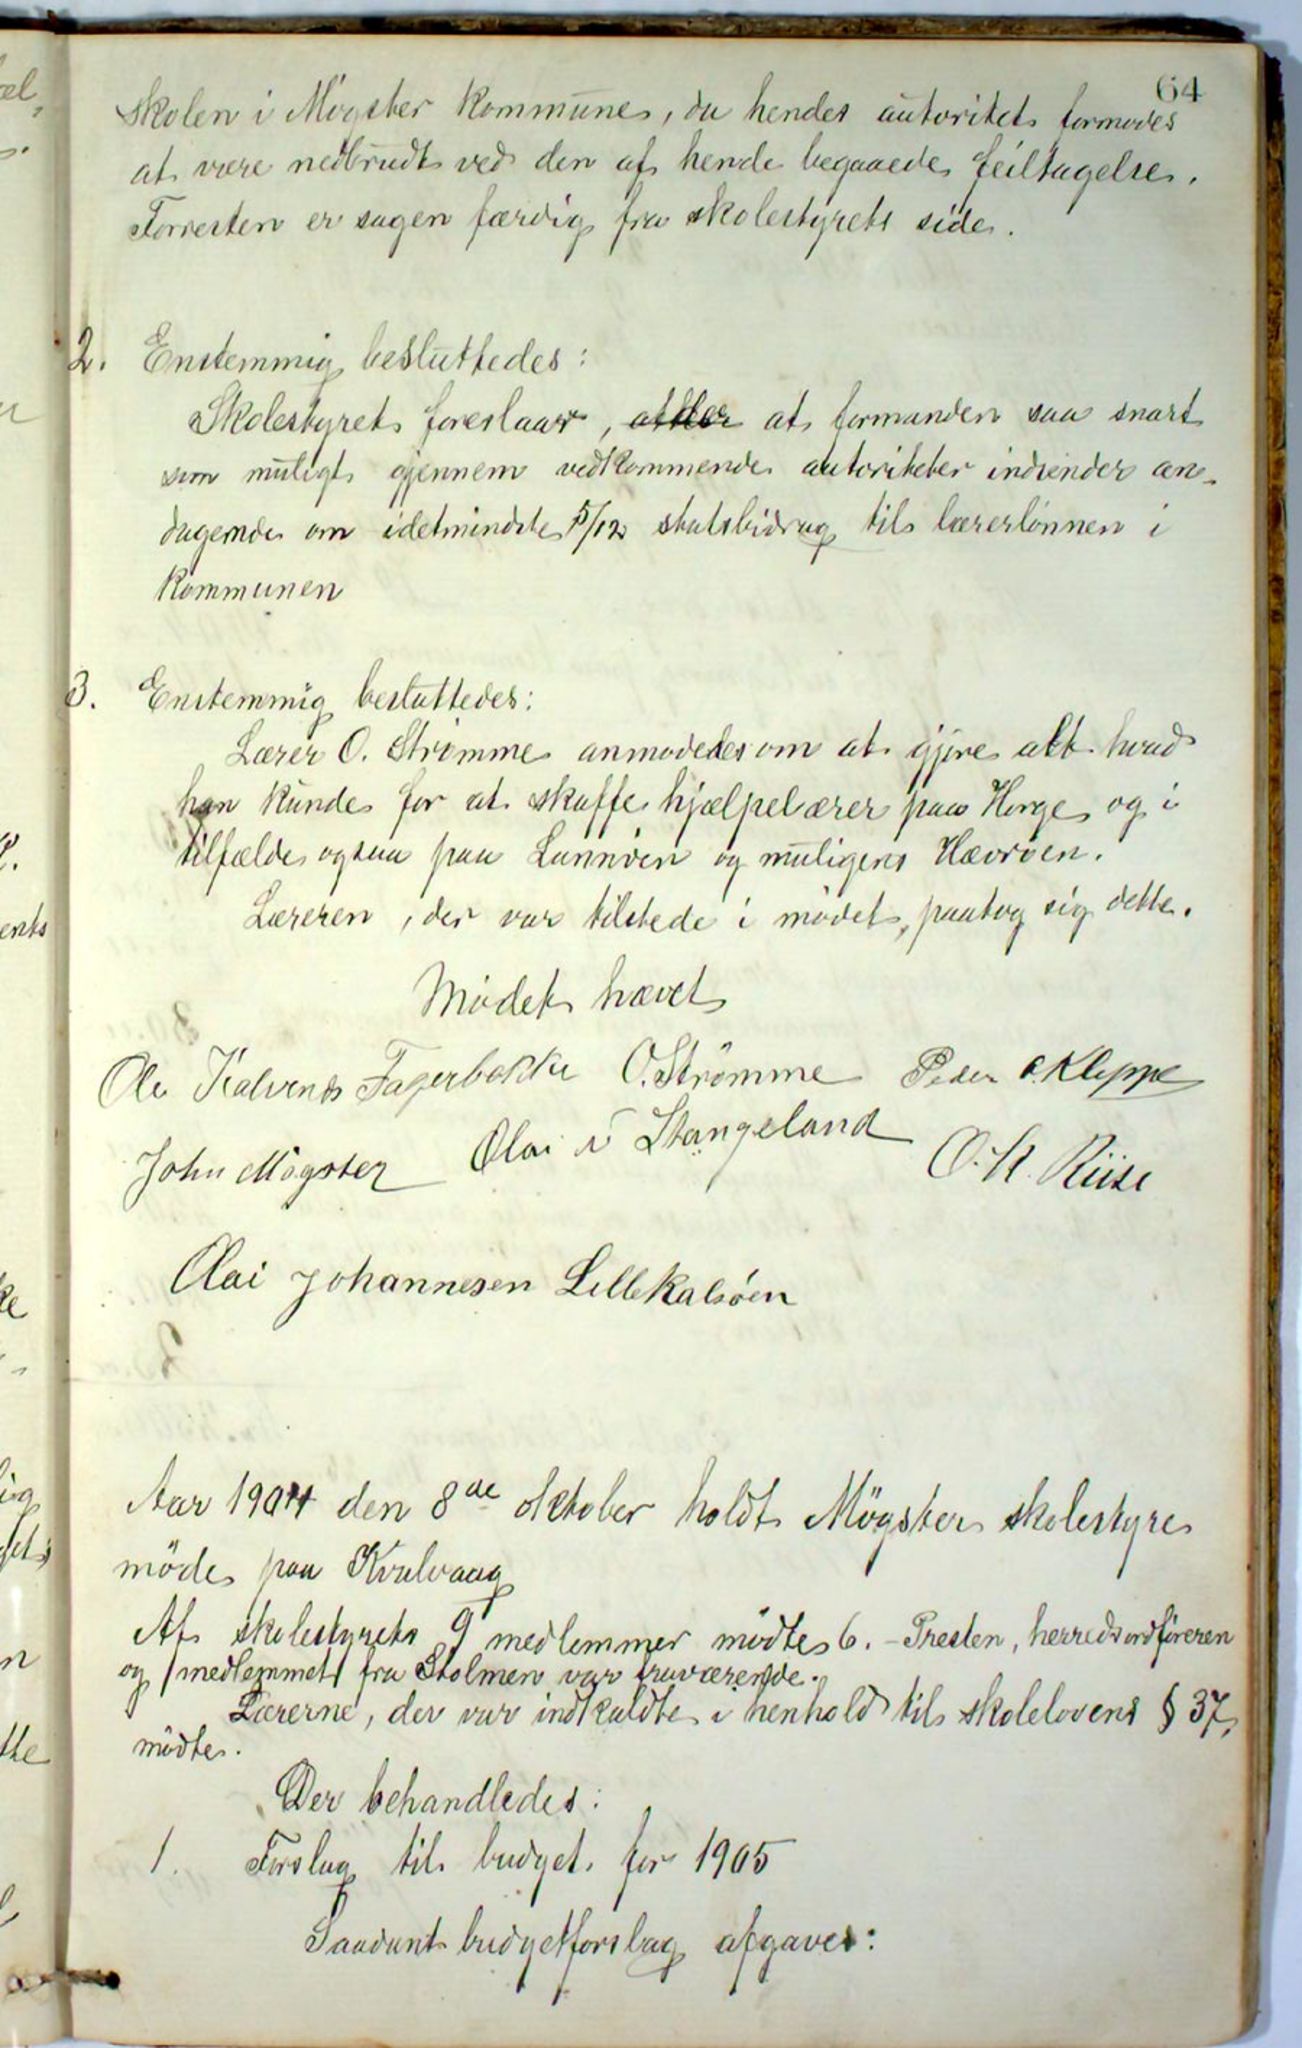 64
skolen i Møgster kommune, da hendes autoritet formodes
at være nedbrudt ved den af hende begaaede feiltagelse.
Forresten er sagen færdig fra skolestyrets side.
2. Enstemmig besluttedes:
Skolestyret foreslaar, at der at formanden saa snart
som muligt gjennem vedkommende autoriteter indsender an-
dragende om idetmindste 5/12 statsbidrag til lærerlønnen i
kommunen
3. Enstemmig besluttedes:
Lærer O. Strømme anmodedes om at gjøre alt hvad
han kunde for at skaffe hjælpelærer paa Horge og i
tilfælde ogsaa paa Lunnøen og muligens Hævrøen.
Læreren, der var tilstede i mødet, paatog sig dette.
Mødet hævet
Ole Kalvenes Fagerbakke O. Strømme Peder O. Kleppe
John Møgster Olai N Stangeland O. K. Riise
Olai Johannesen Lillekalsøen
Aar 1904 den 8de oktober holdt Møgster skolestyre
møde paa Kvalvaag
Af skolestyrets 9 medlemmer mødte 6. - Presten, herredsordføreren
og medlemmet fra Stolmen var fraværende.
Lærerne, der var indkaldte i henhold til skolelovens § 37,
mødte.
Der behandledes:
1. Forslag til budget for 1905
Saadant budgetforslag afgaves: